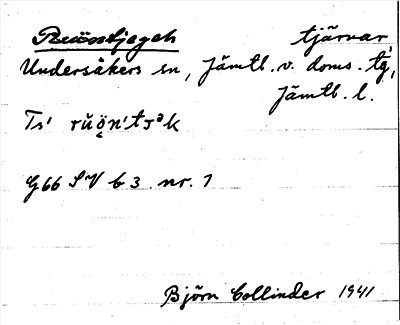 Ruöndjegeh tjärnar
Undersåkers sn, Jämtl. v. doms. tg,
Jämtl. l.
Ts'
G66 SV b 3 nr. 1
Björn Collinder 1941